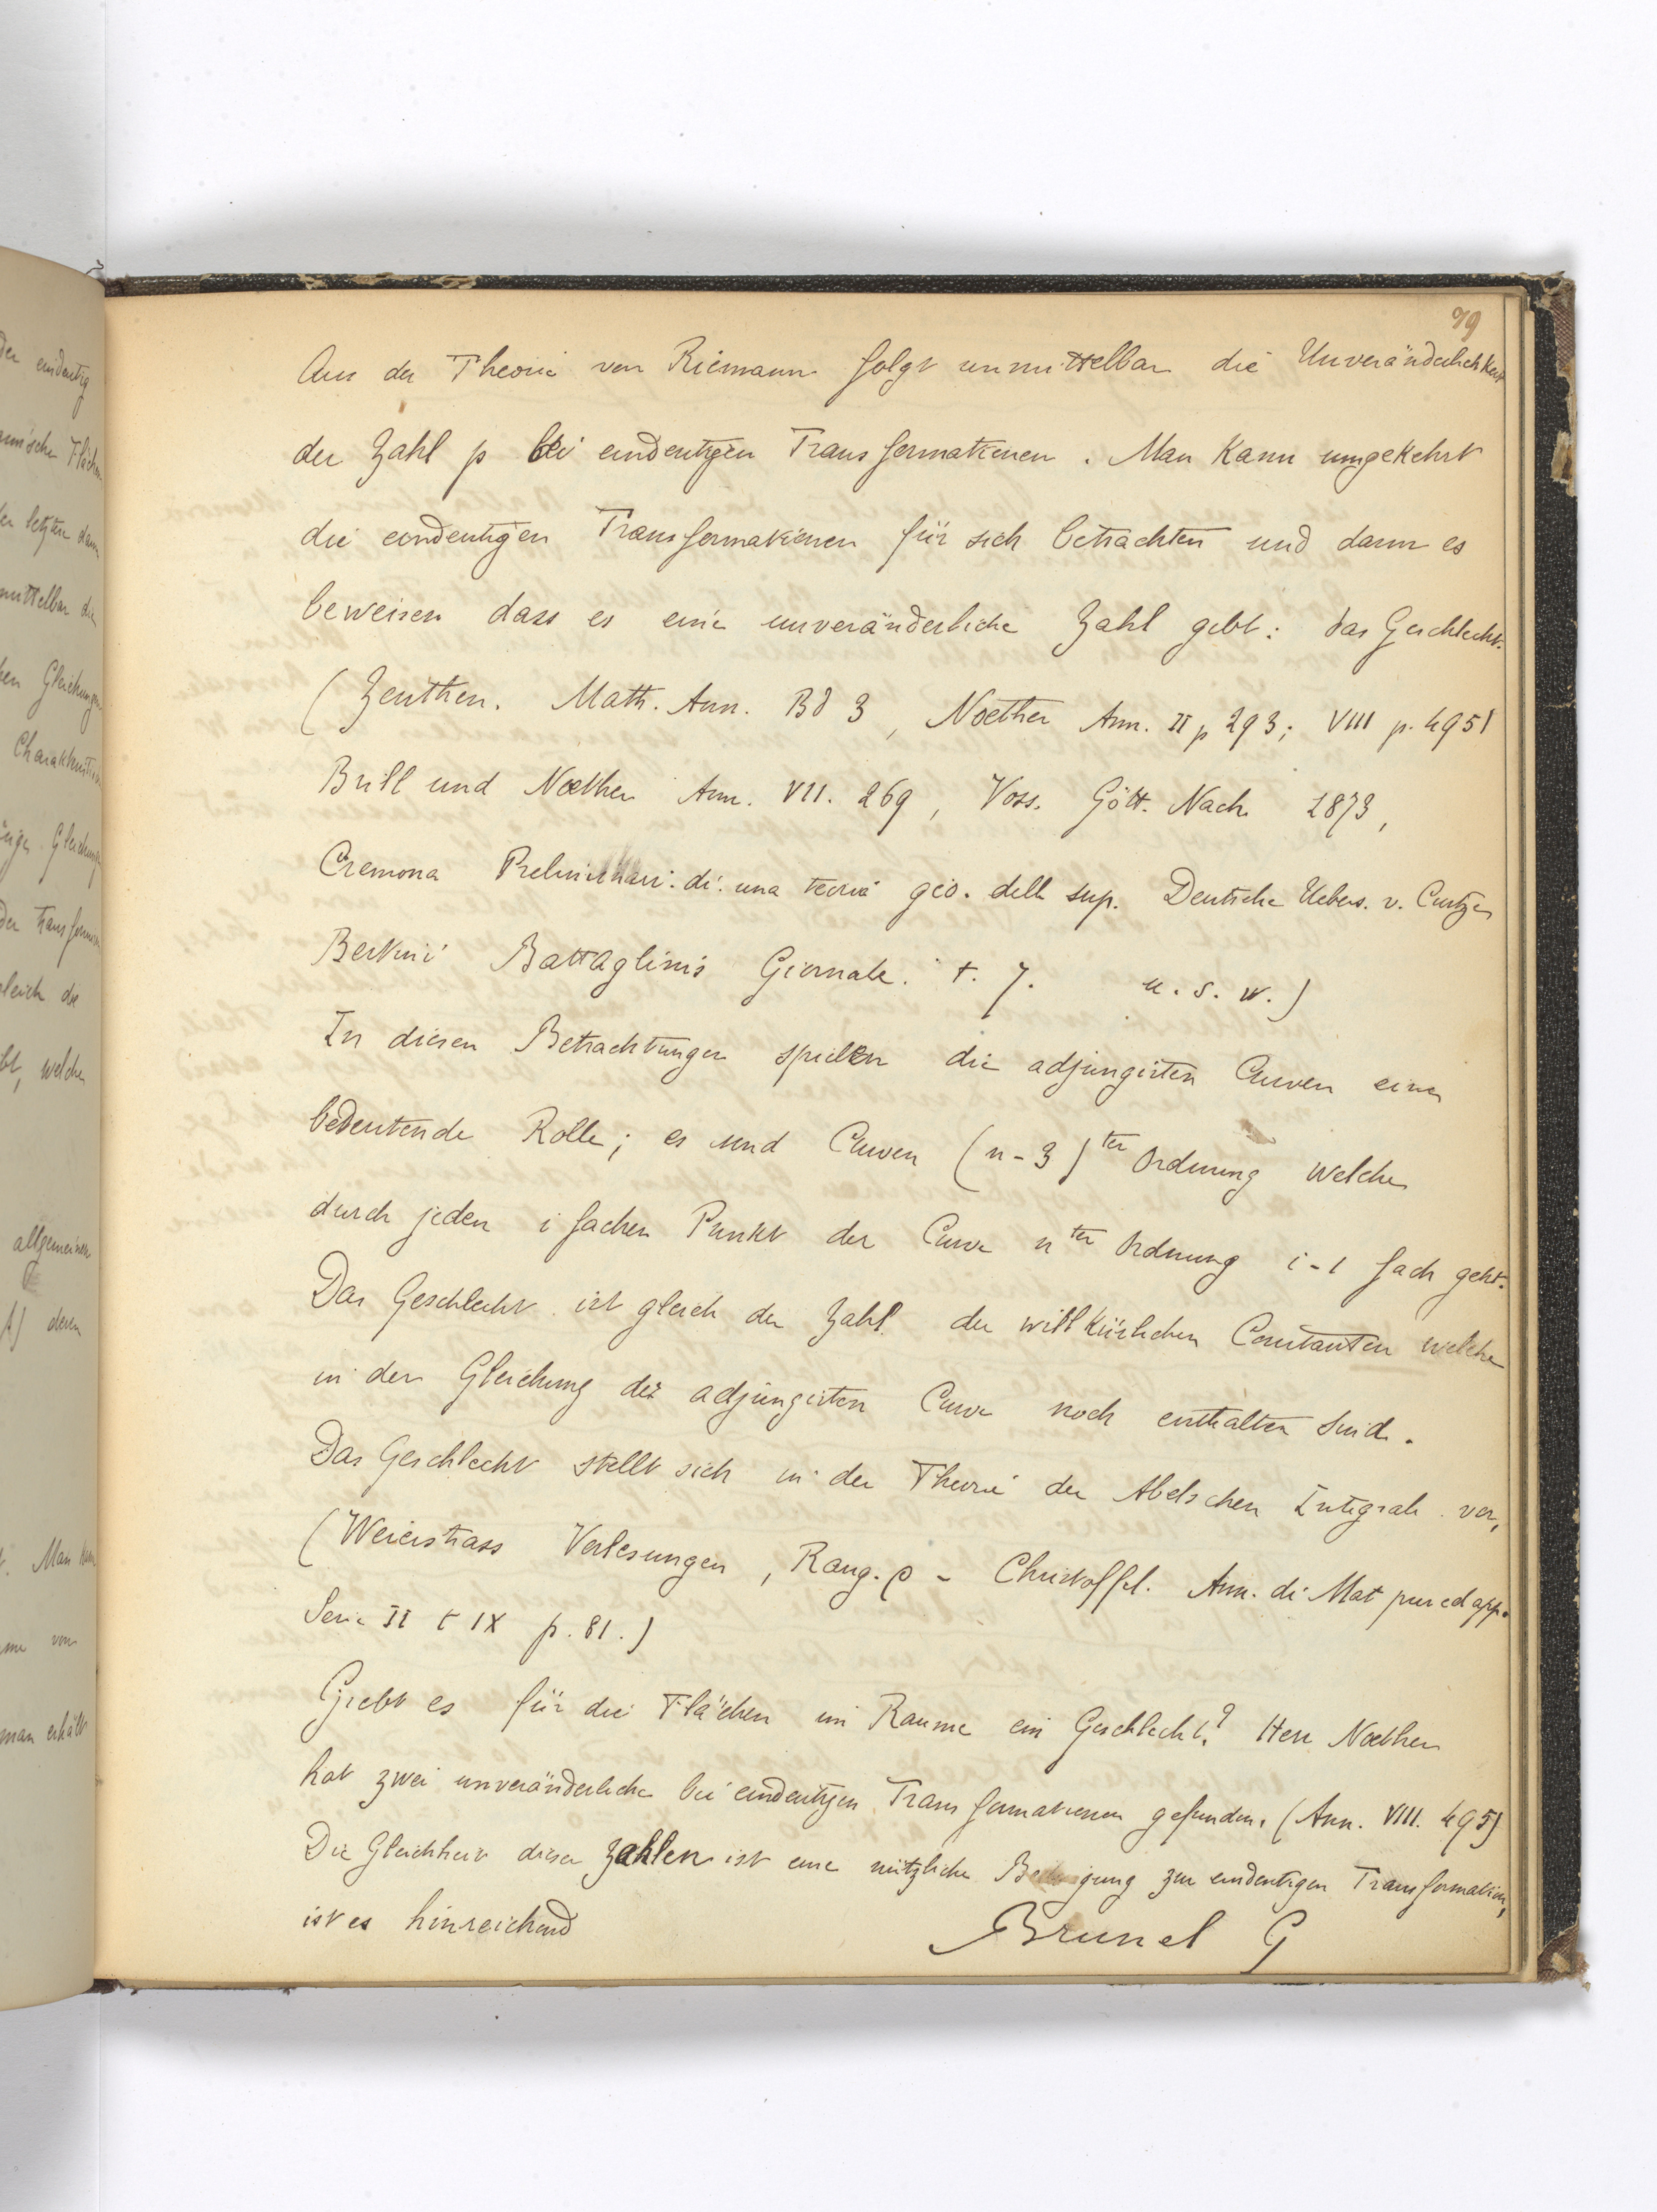 79
Aus der Theorie von Riemann folgt unmittelbar die Unveränderlichkeit
der Zahl p bei eindeutigen Transformationen. Man kann umgekehrt
die eindeutigen Transformationen für sich betrachten und dann es
beweisen dass es eine unveränderliche Zahl gebt: das Geschlecht.
(Zeuthen. Math. Ann. Bd 3, Noether Ann. II p 293; VIII p. 495)
Brill und Noether Ann. VII. 269, Voss. Gött. Nach. 1873,
Cremona Preliminari di una teoria geo. delle sup. Deutsche Uebers. v. Curtze
Bertini Battaglinis Giornale. t. 7. u. s. w.)
In diesen Betrachtungen spielen die adjungirten Curven eine
bedeutende Rolle; es sind Curven (n-3)ter Ordnung welche
durch jeden i fachen Punkt der Curve nter Ordnung i-1 fach geht.
Das Geschlecht ist gleich der Zahl der willkürlichen Constanten welche
in der Gleichung der adjungirten Curve noch enthalten sind.
Das Geschlecht stellt sich in der Theorie der Abelschen Integrale vor,
(Weierstrass Vorlesungen, Rang. ρ - Christoffel. Ann. di Mat pur ed app.
Serie II t IX p. 81.)
Giebt es für die Flächen im Raume ein Geschlecht? Herr Noether
hat zwei unveränderliche bei eindeutigen Transformationen gefunden. (Ann. VIII. 495)
Die Gleichheit dieser Zahlen ist eine nützliche Bedingung zur eindeutigen Transformation,
ist es hinreichend
Brunel G
der eindeutig
letzten dann
mittelbar die
Gleichungen
der Transform
gleich die
welche
allgemeinen
deren
Man kann
von
man erhält